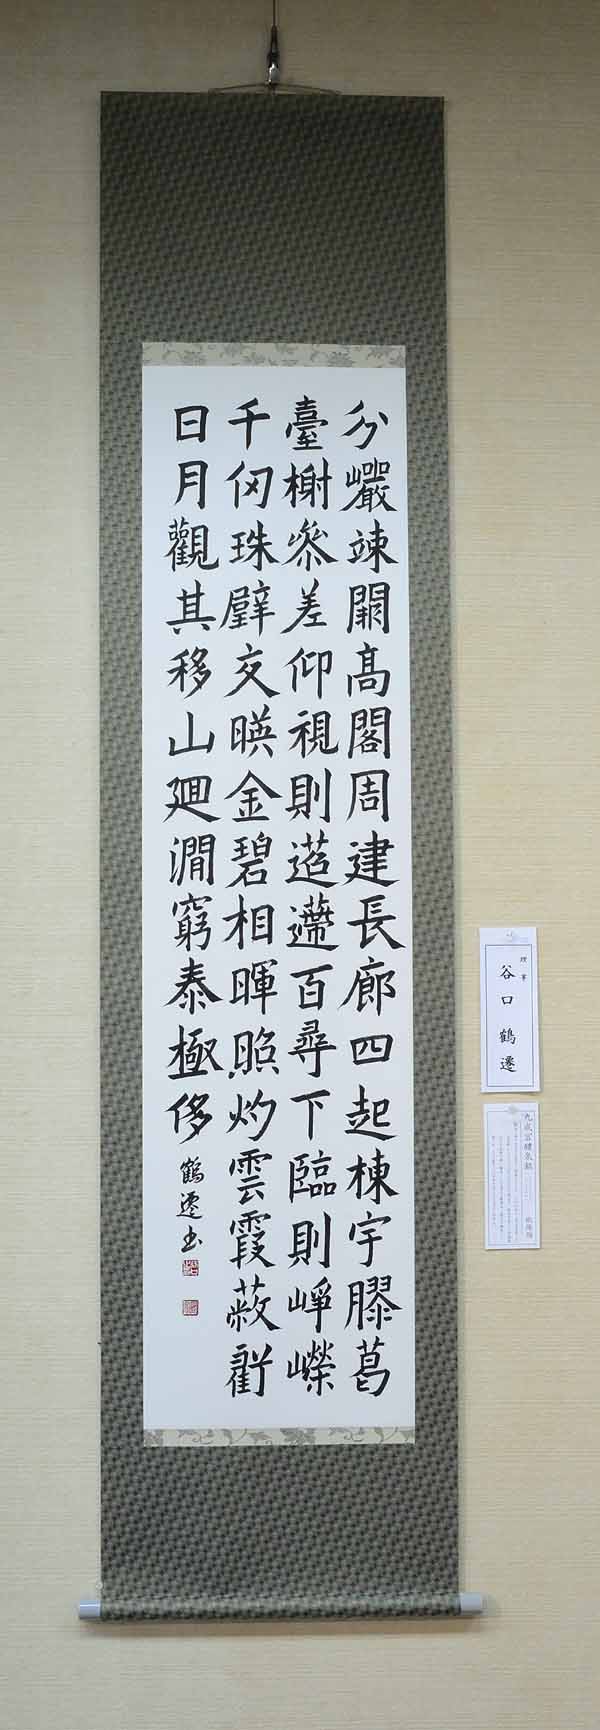 分巖竦闕高閣周建長廊四起棟宇膠葛
臺榭參差仰視則迢遰百尋下臨則崢嶸
千仞珠璧交暎金碧相暉照灼雲霞蔽虧
日月觀其移山廻澗窮泰極侈
鶴遷書
理事
谷口鶴遷
九成宮醴泉銘
欧陽詢